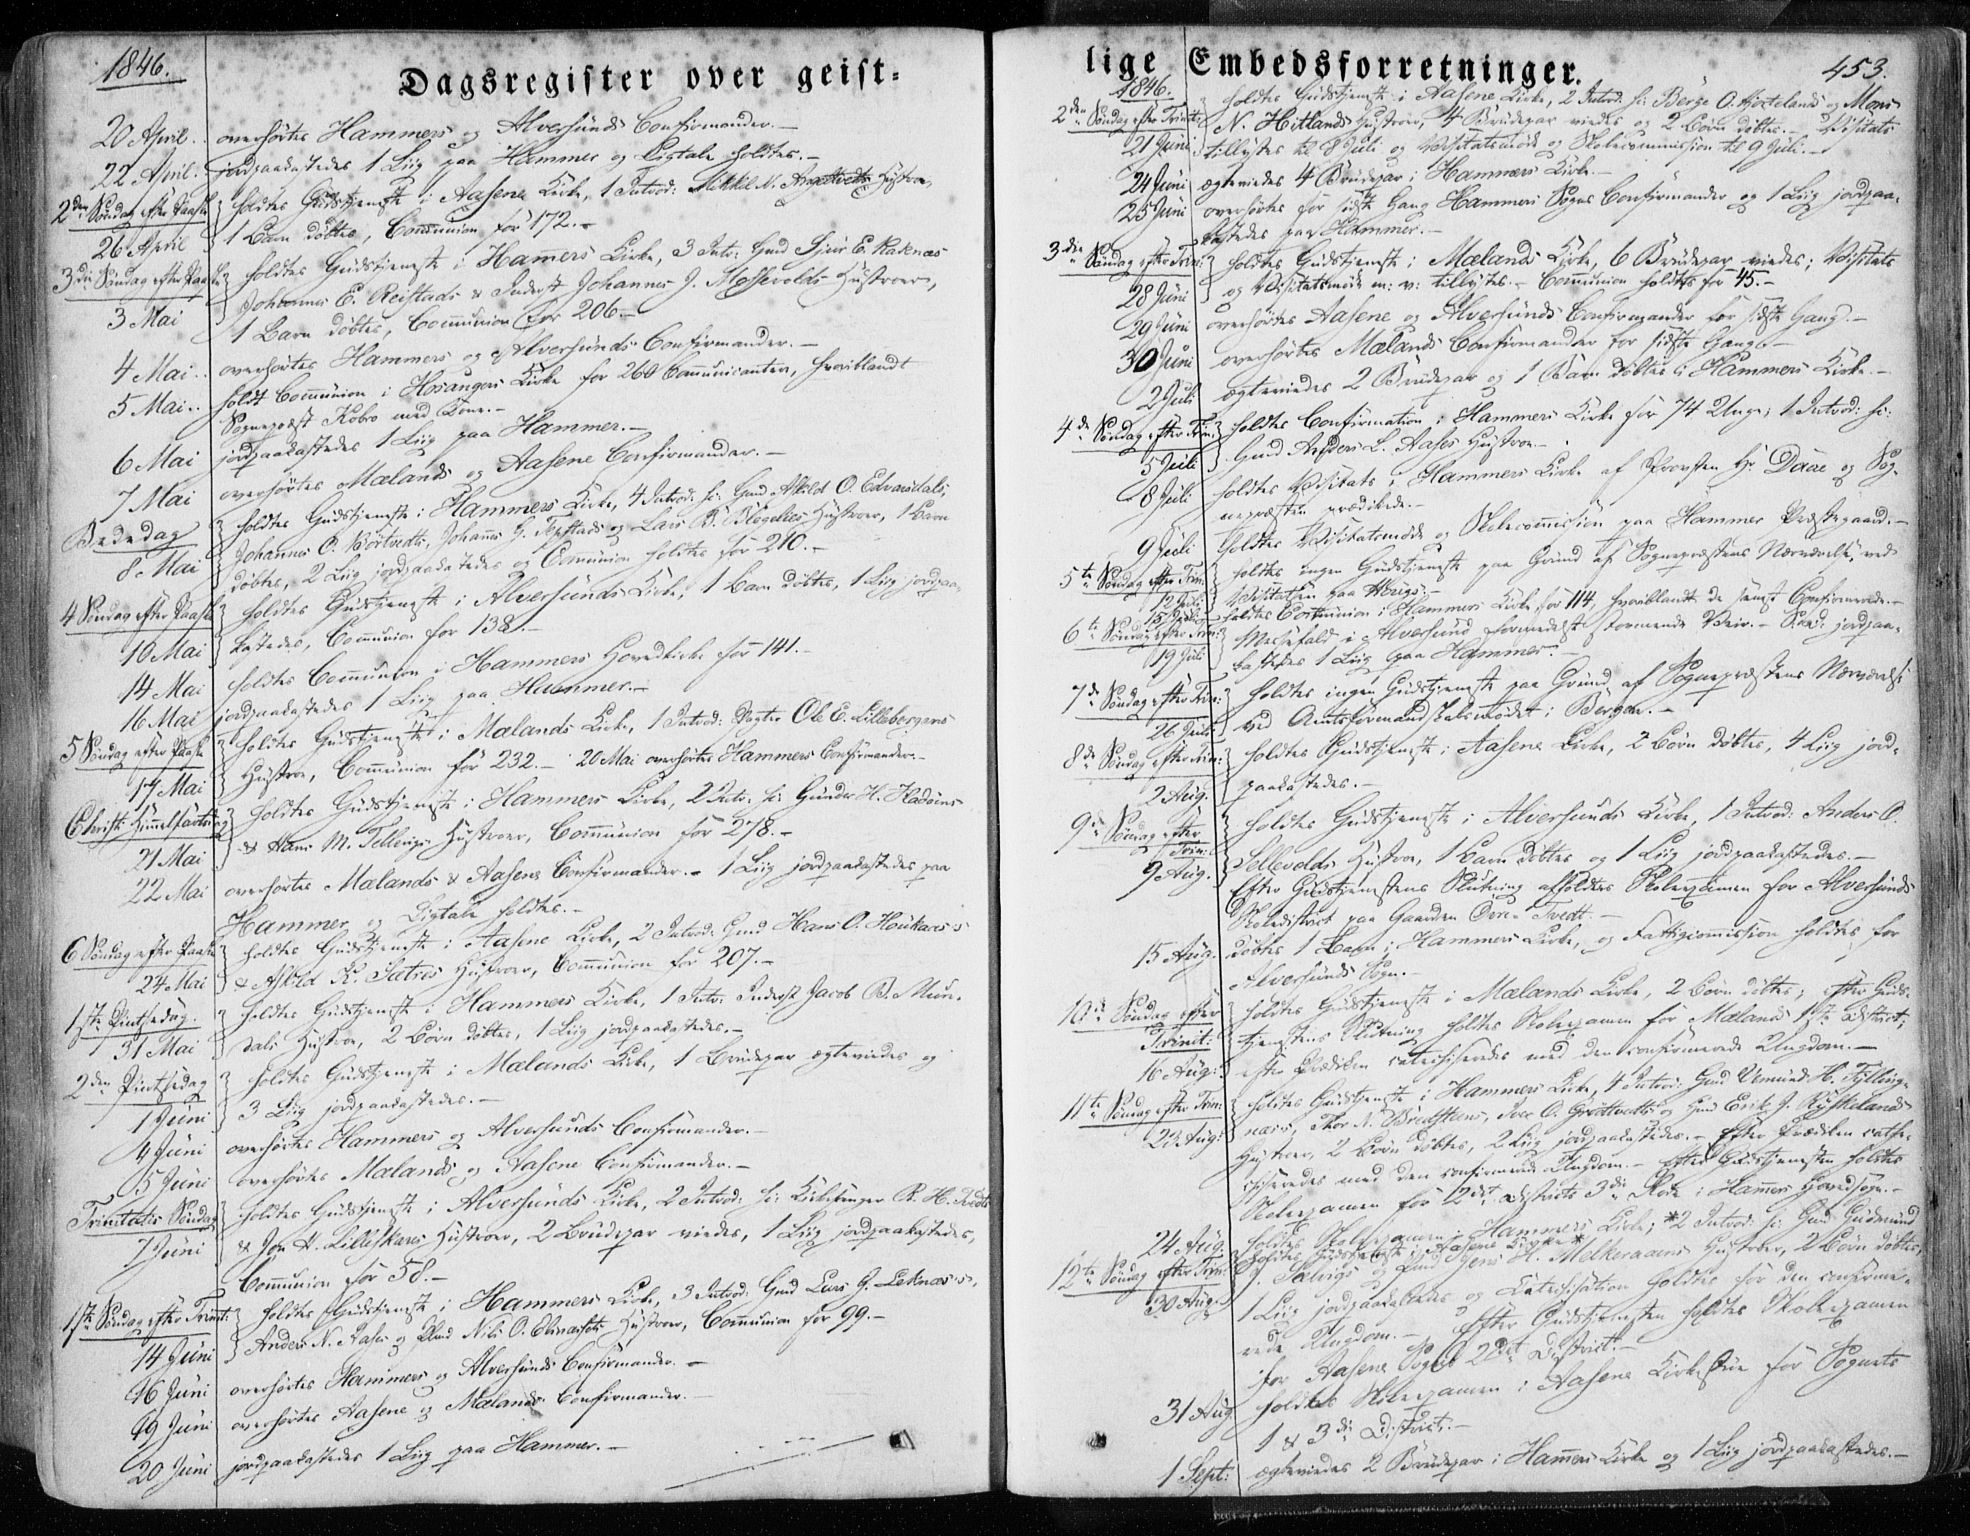 1846.
Dagsregister over geist-
20 April. overhørtes Hammers og Alversunds Confirmander.-
22 April. jordpaakastedes 1 Liig paa Hammer og Ligtale holdtes.-
2den Søndag efter Paaske holdtes Gudstjeneste i Aasene Kirke, 1 Introd: Mikkel N. Hustroe,
26 April 1 Barn døbtes, Communion for 172.-
3die Søndag efter Paaske holdtes Gudstjeneste i Hamers Kirke, 3 Intr: Gmd Sjur E. Radenæs
3 Mai Johannes E. Reistads & Inderst Johannes J. Mossevolds Hustroer,
1 Barn døbtes, Communion for 206.-
4 Mai.. overhørtes Hammers og Alversunds Confirmander.-
5 Mai.. holdt Communion i Hosangers Kirke for 260 Communicanter, hvoriblandt
Sognepræst Kobro med Kone.-
6 Mai jordpaakastedes 1 Liig paa Hammer.-
7 Mai overhørtes Mælands og Aasene Confirmander.-
Bededag holdtes Gudstjeneste i Hammers Kirke, 4 Introd: h: Gmd Askild O. Edvarsdals,
8 Mai Johannes O. Hustroer, 1 Barn
døbtes, 2 Liig jordpaakastedes og Communion holdtes for 210.-
4 Søndag efter Paaske holdtes Gudstjeneste i Alversunds Kirke, 1 Barn døbtes, 1 Liig jordpaa-
10 Mai kastedes, Communion for 138.-
14 Mai holdtes Communion i Hammers Hovedkirke for 141.-
16 Mai jordpaakastedes 1 Liig paa Hammer.-
5 Søndag efter Paaske holdtes Gudstjeneste i Mælands Kirke, 1 Introd: Ole E. Lillebergens
17 Mai Hustroe, Communion for 232.- 20 Mai overhørtes Hammers Confirmander.-
Christi Himmelfartsdag holdtes Gudstjeneste i Hammers Kirke, 2 Intr: h: Gunder H. Fladøens
21 Mai & Hans M. Tellevigs Hustroer, Communion for 278.-
22 Mai overhørtes Mælands & Aasene Confirmander.- 1 Liig jordpaakastedes paa
Hammer og Ligtale holdtes.-
6 Søndag efter Paaske holdtes Gudstjeneste i Aasene Kirke, 2 Introd: Gmd Hans O. Houkaas's
24 Mai & Askild K. Sætres Hustroer, Communion for 207.-
1ste Pintsedag. holdtes Gudstjeneste i Hammers Kirke, 1 Intr: Inderst Jacob B. Mun-
31 Mai dals Hustroe, 2 Børn døbtes, 1 Liig jordpaakastedes.-
2den Pintsedag holdtes Gudstjeneste i Mælands Kirke, 1 Brudepar ægteviedes og
1 Juni 3 Liig jordpaakastedes.-
4 Juni overhørtes Hammers og Alversunds Confirmander.-
5 Juni overhørtes Mælands og Aasene Confirmander.-
Trinitatis Søndag holdtes Gudstjeneste i Alversunds Kirke, 2 Introd: h: Kirkesanger R. H. Tvedts
7 Juni & Jon H. Lilleskares Hustroer, 2 Brudepar viedes, 1 Liig jordpaakastedes,
Communion for 58.-
1ste Søndag efter Trinit: holdtes Gudstjeneste i Hammers Kirke, 3 Introd: Gmd Lars J. Leknæs's,
14 Juni Anders N. Aases og Nils O. Hustroer, Communion for 99.-
16 Juni overhørtes Hammers og Alversunds Confirmander.-
19 Juni overhørtes Aasene og Mælands Confirmander.-
20 Juni jordpaakastedes 1 Liig paa Hammer.-
lige Embedsforretninger.
453.
1846.
2den Søndag efter Trinit: holdtes Gudstjeneste i Aasene Kirke, 2 Introd: h: Børge O. Hjortelands og Mons
21 Juni N. Hitlands Hustroer, 4 Brudepar viedes og 2 Børn døbtes.- Visitats
tillystes til 8 Juli og Visitatsmøde og Skolecommission til 9 Juli.-
24 Juni ægteviedes 4 Brudepar i Hammers Kirke.-
25 Juni overhørtes for sidste Gang Hammers Sogns Confirmander og 1 Liig jordpaa-
kastedes paa Hammer.-
3die Søndag efter Trin: holdtes Gudstjeneste i Mælands Kirke, 6 Brudepar viedes; Visitats
28 Juni og Visitatsmøde m: v: tillystes.- Communion holdtes for 45.-
29 Juni overhørtes Aasene og Alversunds Confirmander for sidste Gang.-
30 Juni overhørtes Mælands Confirmander for sidste Gang.-
2 Juli ægteviedes 2 Brudepar og 1 Barn døbtes i Hammers Kirke.-
4de Søndag efter Trin: holdtes Confirmation i Hammers Kirke for 74 Unge; 1 Introd: h:
5 Juli Gmd Anders L. Aases Hustroe.-
8 Juli holdtes Visitats i Hammers Kirke af Provsten Hr Daae og Sog-
nepræsten prædikede.-
9 Juli holdtes Visitatsmøde og Skolecommission paa Hammer Præstegaard.-
5te Søndag efter Trin: holdtes ingen Gudstjeneste paa Grund af Sognepræstens Nærværelse ved
12 Juli Visitatsen paa
15 Juli holdtes Communion i Hammers Kirke for 114, hvoriblandt de sidst Confirmerede.-
6te Søndag efter Trin: Messefald i Alversund formedelst stormende Veir.- jordpaa-
19 Juli kastedes 1 Liig paa Hammer.-
7de Søndag efter Trin: holdtes ingen Gudstjeneste paa Grund af Sognepræstens Nærværelse
26 Juli ved Amtsformandskabsmødet i Bergen.-
8de Søndag efter Trin: holdtes Gudstjeneste i Aasene Kirke, 2 Børn døbtes, 4 Liig jord-
2 Aug. paakastedes.-
9de Søndag efter Trin: holdtes Gudstjeneste i Alversunds Kirke, 1 Introd: Anders O.
9 Aug. Sellevolds Hustroe, 1 Barn døbtes og 1 Liig jordpaakastedes.-
Efter Gudstjenestens Slutning afholdtes Skoleexamen for Alversunds
Skoledistrict paa Gaarden Øvre Tvedt.-
15 Aug. døbtes 1 Barn i Hammers Kirke, og Fattigcommission holdtes for
Alversunds Sogn.-
10de Søndag efter Trinit: holdtes Gudstjeneste i Mælands Kirke, 2 Børn døbtes; efter Guds-
16 Aug: tjenestens Slutning holdtes Skoleexamen for Mælands 1ste District;
efter Prædiken catechiseredes med den confirmerede Ungdom.-
11te Søndag efter Trin: holdtes Gudstjeneste i Hammers Kirke, 4 Introd: Gmd Vemund H. Fylling-
23 Aug: næss, Thor N. Bredsteens, Iver O. Grøttvedts og Gmd Erik J. Ryskelands
Hustroer, 2 Børn døbtes, 2 Liig jordpaakastedes.- Efter Prædiken cathe-
chiseredes med den confirmerede Ungdom.- Efter Gudstjenesten holdtes
Skoleexamen for 2det Districts 3die Rode i Hamers Hovedsogn.-
24 Aug. holdtes Skoleexamen i Hammers Kirke;
12te Søndag efter Trin: holdtes Gudstjeneste i Aasene Kirke * *2 Introd: h: Gmd Gudmund
30 Aug: J. Sælvigs og Gmd H. Melkeraaens Hustroer, 2 Børn døbtes,
1 Liig jordpaakastedes og Catechisation holdtes for den confirme-
rede Ungdom.- Efter Gudstjenesten holdtes Skoleexamen
for Aasene Sogns 2det District.-
31 Aug. holdtes Skoleexamen i Aasene Kirkestue for Sognets
1 & 3die District.-
1 Sept: ægteviedes 2 Brudepar i Hamers Kirke og 1 Liig jordpaakastedes.-